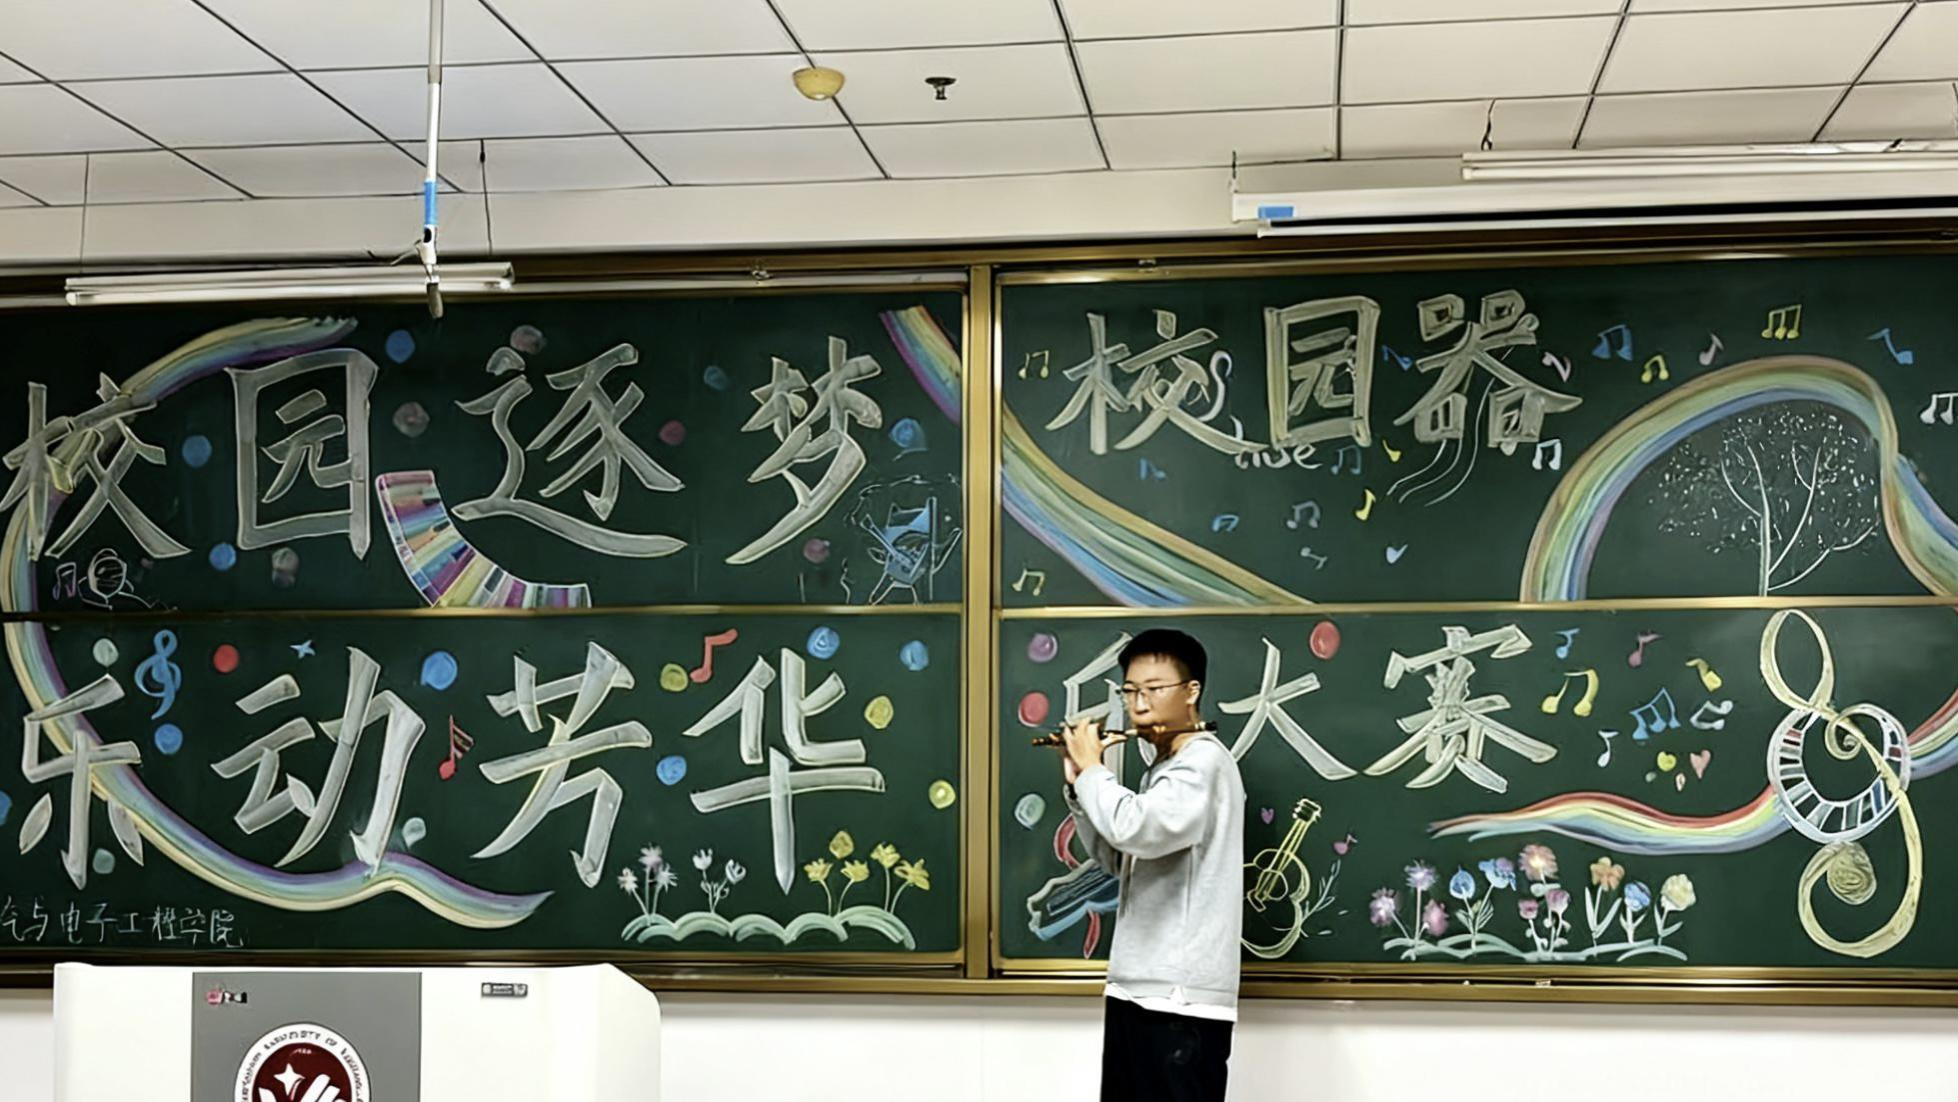 校园逐梦
乐动芳华
气与电子工程学院
校园器
乐大赛